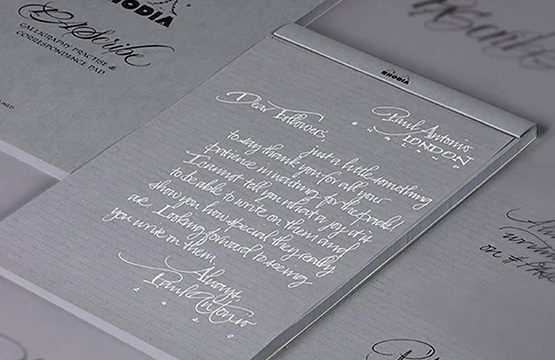 RHODIA
PAScribe
CALLIGRAPHY PRACTISE &
CORRESPONDENCE PAD
RHODIA
Paul Antonio
LONDON
ENGLAND
Dear Followers,
just a little something
to say thank you for all your
patience in waiting for the pads!
I cannot tell you what a joy it is
to be able to write on them and
show you how special they really
are. Looking forward to seeing
you write on them.
Always,
Paul Antonio
2020